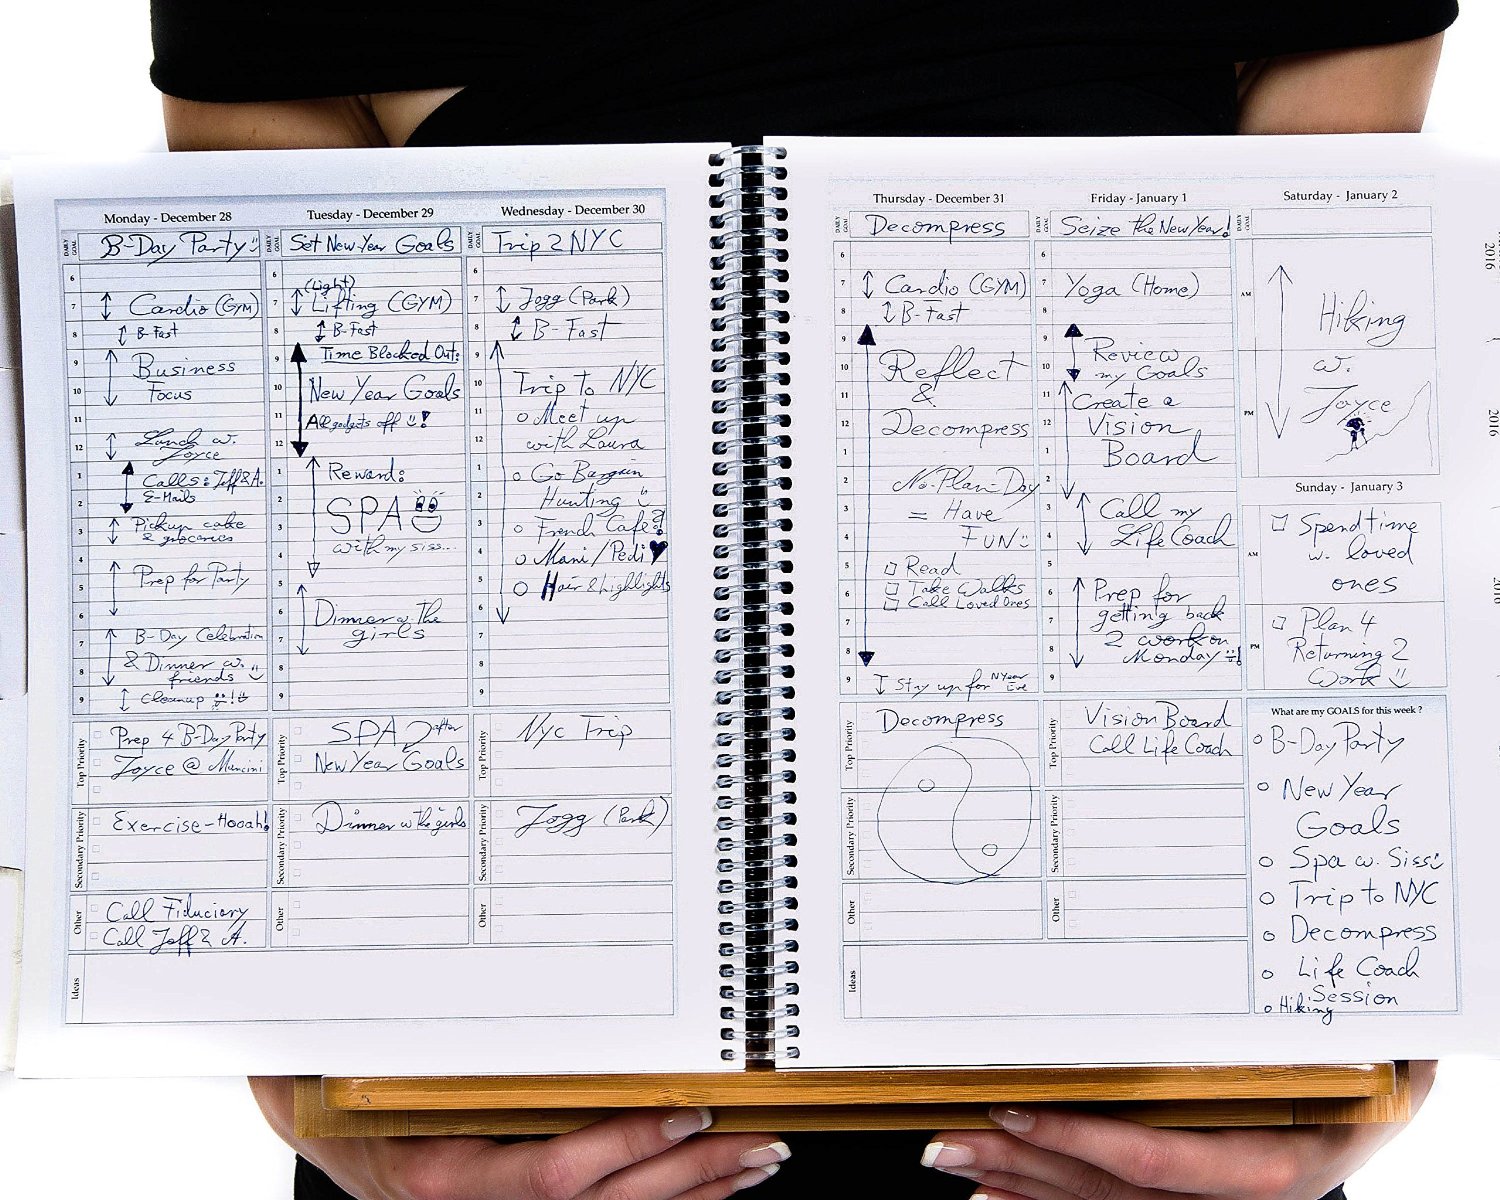 Monday - December 28
DAILY GOAL
B-Day Party
6
7
8
9
10
11
12
1
2
3
4
5
6
7
8
9
Cardio (GYM)
B-Fast
Business
Focus
Lunch w.
Joyce
Calls: Jeff & A.
E-Mails
Pickup cake
& groceries
Prep for Party
B-Day Celebration
& Dinner w.
friends
Cleanup !
Top Priority
Prep 4 B-Day Party
Joyce @ Mancini
Secondary Priority
Exercise-Hooah!
Other
Call Fiduciary
Call Jeff & A.
Ideas
Tuesday - December 29
DAILY GOAL
Set New Year Goals
6
7
8
9
10
11
12
1
2
3
4
5
6
7
8
9
(Light)
Lifting (GYM)
B-Fast
Time Blocked Out:
New Year Goals
All gadgets off !
Reward:
SPA
with my siss...
Dinner w the
girls
Top Priority
SPA after
New Year Goals
Secondary Priority
Dinner w the girls
Other
Wednesday - December 30
DAILY GOAL
Trip 2 NYC
6
7
8
9
10
11
12
1
2
3
4
5
6
7
8
9
Jogg (Park)
B-Fast
Trip to NYC
Meet up
with Laura
Go Bargain
Hunting
French Cafe!
Mani/Pedi
Hair & Highlights
Top Priority
Nyc Trip
Secondary Priority
Jogg (Park)
Other
Thursday - December 31
DAILY GOAL
Decompress
6
7
8
9
10
11
12
1
2
3
4
5
6
7
8
9
Cardio (GYM)
B-Fast
Reflect
&
Decompress
No-Plan-Day
= Have
FUN
Read
Take Walks
Call Loved Ones
Stay up for NYear Eve
Top Priority
Decompress
Secondary Priority
Other
Ideas
Friday - January 1
DAILY GOAL
Seize the New Year!
6
7
8
9
10
11
12
1
2
3
4
5
6
7
8
9
Yoga (Home)
Review
my Goals
Create a
Vision
Board
Call my
Life Coach
Prep for
getting back
2 work on
Monday !
Top Priority
Vision Board
Call Life Coach
Secondary Priority
Other
Saturday - January 2
DAILY GOAL
AM
PM
Hiking
w.
Joyce
Sunday - January 3
AM
PM
Spend time
w. loved
ones
Plan 4
Returning 2
Work
What are my GOALS for this week ?
B-Day Party
New Year
Goals
Spa w. Siss
Trip to NYC
Decompress
Life Coach
Session
Hiking
2016
2016
2016